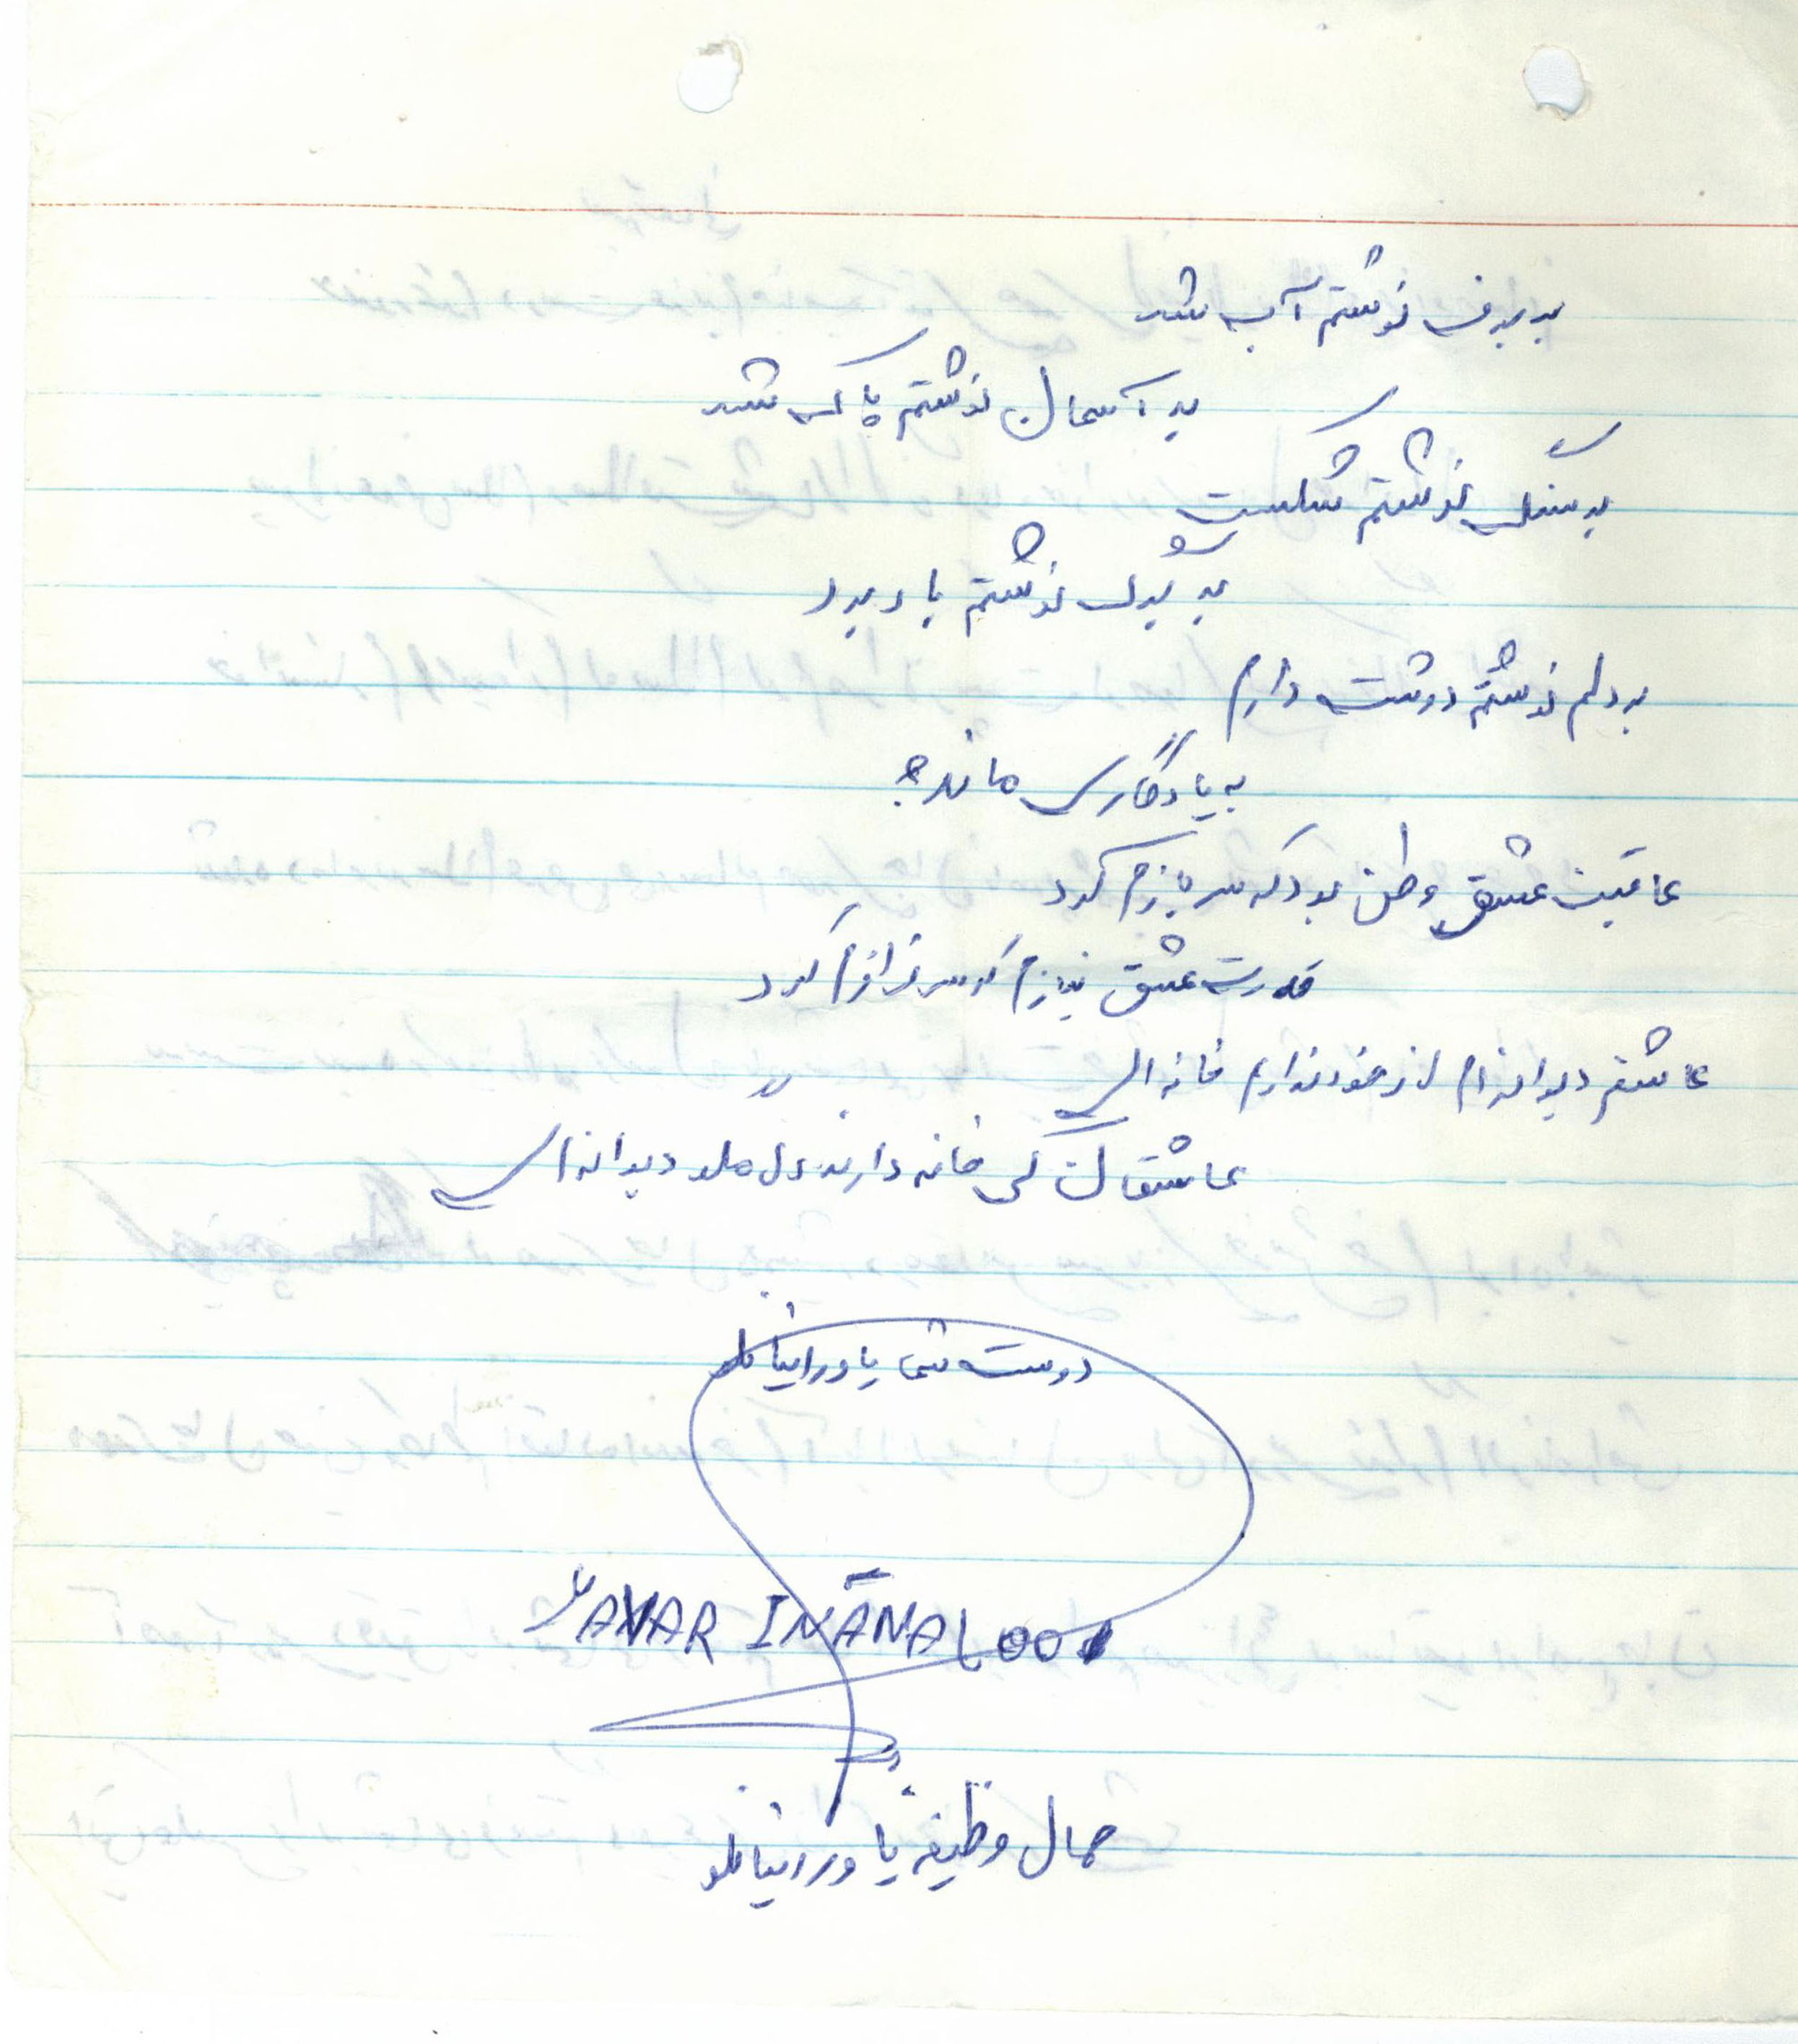 بر برف نوشتم آب شد
بر آسمان نوشتم پاک شد
بر سنگ نوشتم شکست
بر برگ نوشتم باد برد
بر دلم نوشتم دوست دارم
به یادگاری ماند
عاقبت عشق وطن بود که سربازم کرد
قدرت عشق بنازم که سرفرازم کرد
عاشقم دیوانه ام از خود ندارم خانه ای
عاشقان کی خانه دارند دل ملو دیوانه ای
دوست شما یاور اینانلو
YAVAR INANALOO
جمال وظیفه یاور اینانلو